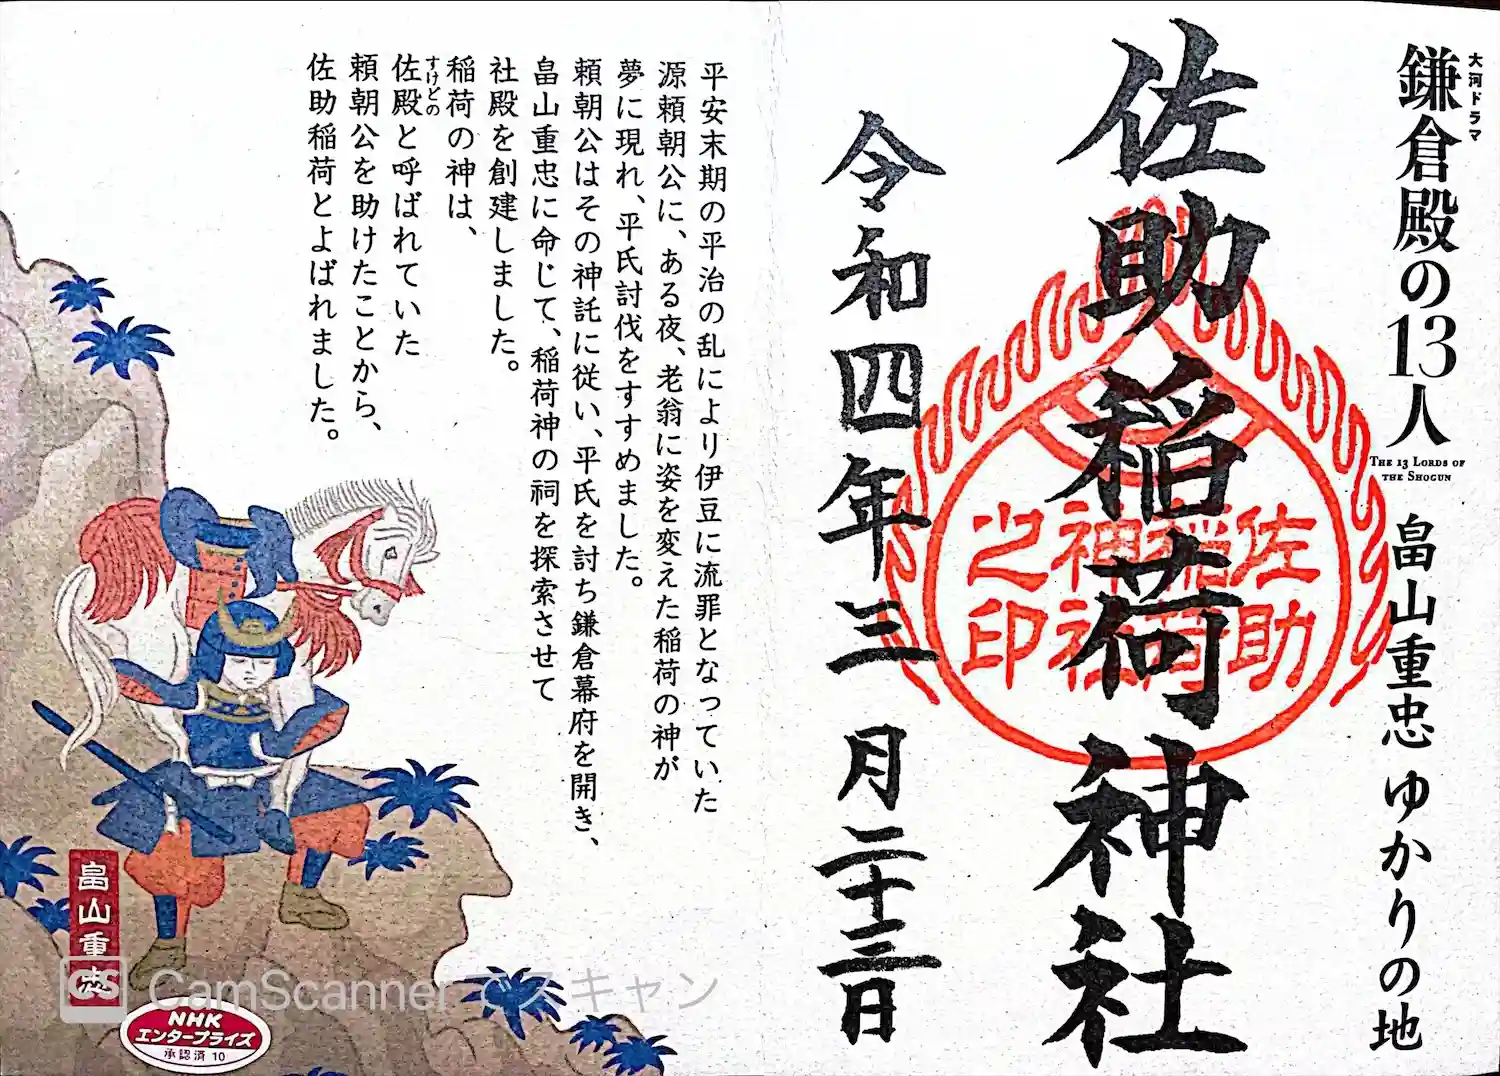 大河ドラマ
鎌倉殿の13人
THE 13 LORDS OF
THE SHOGUN
畠山重忠 ゆかりの地
佐助稲荷神社
佐助
稲荷
神社
之印
令和四年三月二十三日
平安末期の平治の乱により伊豆に流罪となっていた
源頼朝公に、ある夜、老翁に姿を変えた稲荷の神が
夢に現れ、平氏討伐をすすめました。
頼朝公はその神託に従い、平氏を討ち鎌倉幕府を開き、
畠山重忠に命じて、稲荷神の祠を探索させて
社殿を創建しました。
稲荷の神は、
すけどの
佐殿と呼ばれていた
頼朝公を助けたことから、
佐助稲荷とよばれました。
畠山重忠
NHK
エンタープライズ
承認済 10
CS CamScanner でスキャン